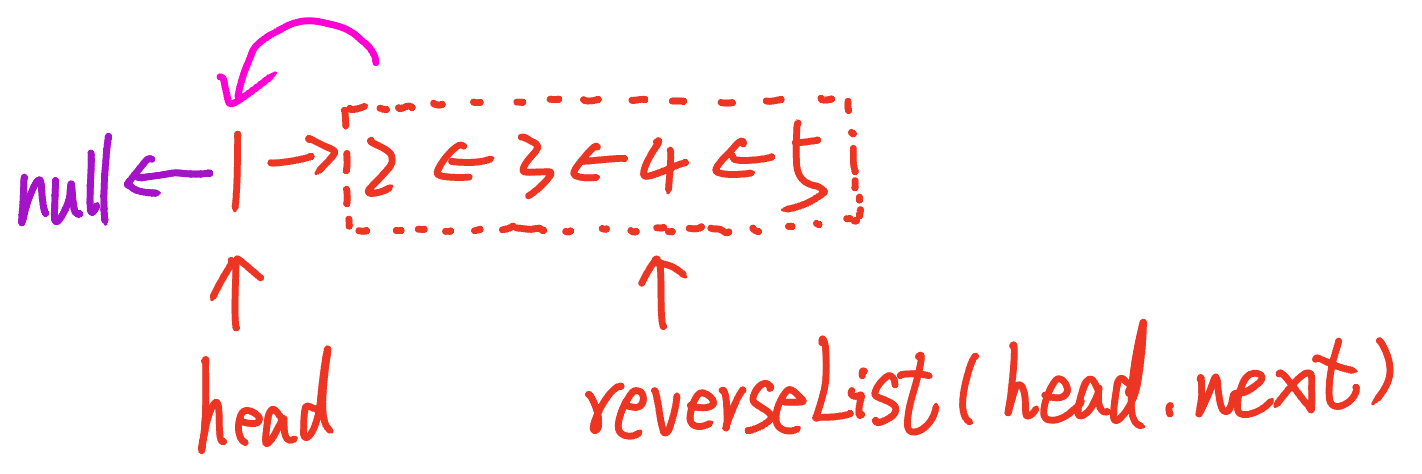 null ← 1 → 2 ← 3 ← 4 ← 5
head
reverseList(head.next)